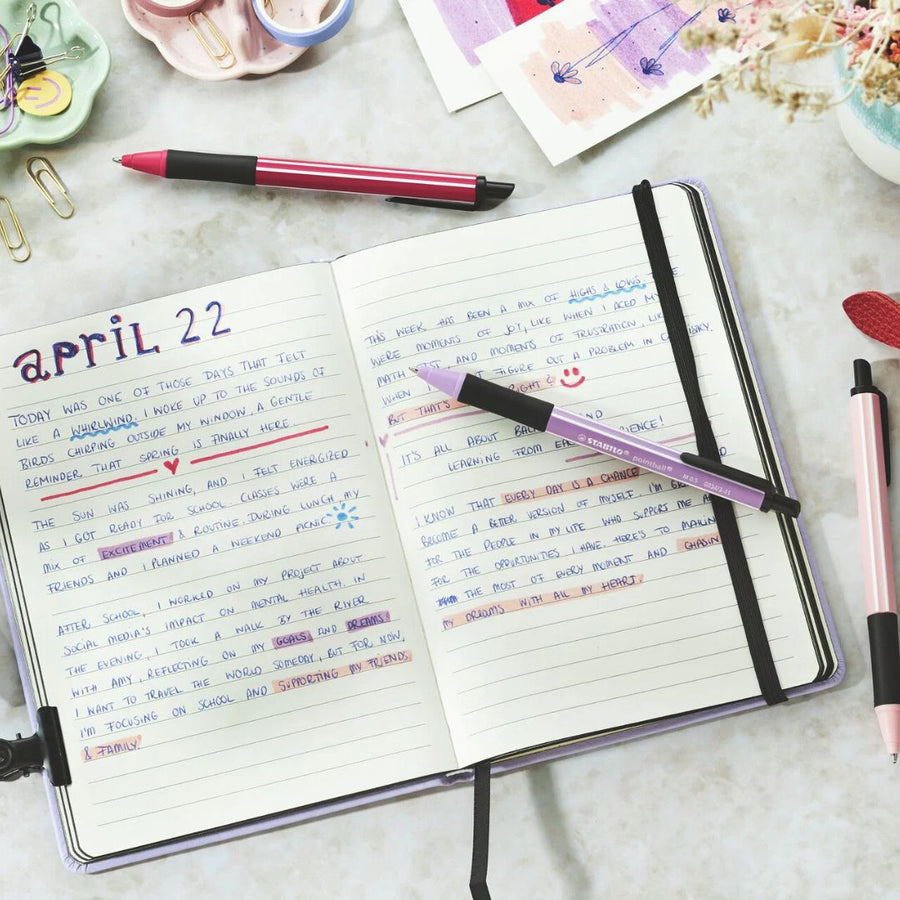 april 22
TODAY WAS ONE OF THOSE DAYS THAT FELT
LIKE A WHIRLWIND. I WOKE UP TO THE SOUNDS OF
BIRDS CHIRPING OUTSIDE MY WINDOW, A GENTLE
REMINDER THAT SPRING IS FINALLY HERE.
THE SUN WAS SHINING, AND I FELT ENERGIZED
AS I GOT READY FOR SCHOOL CLASSES WERE A
MIX OF EXCITEMENT & ROUTINE. DURING LUNCH, MY
FRIENDS AND I PLANNED A WEEKEND PICNIC
AFTER SCHOOL, I WORKED ON MY PROJECT ABOUT
SOCIAL MEDIA'S IMPACT ON MENTAL HEALTH. IN
THE EVENING, I TOOK A WALK BY THE RIVER
WITH AMY, REFLECTING ON MY GOALS AND DREAMS.
I WANT TO TRAVEL THE WORLD SOMEDAY, BUT FOR NOW,
I'M FOCUSING ON SCHOOL AND SUPPORTING MY FRIENDS
& FAMILY!
THIS WEEK HAS BEEN A MIX OF HIGHS & LOWS.
WERE MOMENTS OF JOY, LIKE WHEN I ACED MY
MATH AND MOMENTS OF FRUSTRATION, LIKE
WHEN FIGURE OUT A PROBLEM IN
BUT THAT'S RIGHT?
IT'S ALL ABOUT AND
LEARNING FROM
I KNOW THAT EVERY DAY IS A CHANCE
BECOME A BETTER VERSION OF MYSELF. I'M
FOR THE PEOPLE IN MY LIFE WHO SUPPORT ME
FOR THE OPPORTUNITIES I HAVE. HERE'S TO
THE MOST OF EVERY MOMENT AND CHASIN
MY DREAMS WITH ALL MY HEART.
STABILO pointball